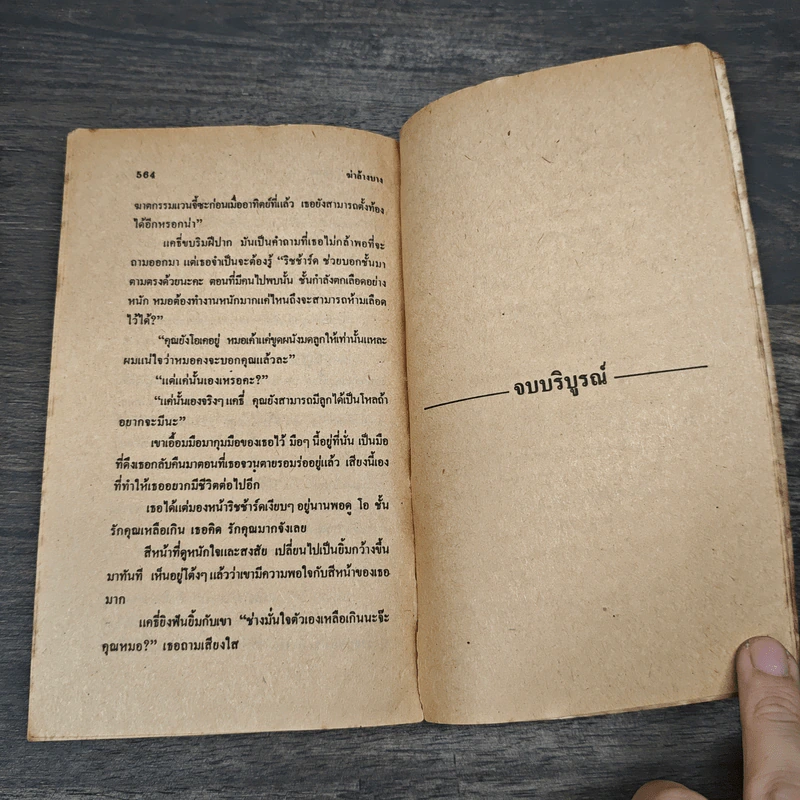 564
ฆ่าล้างบาง
ฆาตกรรมแวนจี้ซะก่อนเมื่ออาทิตย์ที่แล้ว เธอยังสามารถตั้งท้อง
ได้อีกหรอกน่า”
แคธี่ขบริมฝีปาก มันเป็นคำถามที่เธอไม่กล้าพอที่จะ
ถามออกมา แต่เธอจำเป็นจะต้องรู้ “ริชช้าร์ด ช่วยบอกชั้นมา
ตามตรงด้วยนะคะ ตอนที่มีคนไปพบนั้น ชั้นกำลังตกเลือดอย่าง
หนัก หมอต้องทำงานหนักมากแค่ไหนถึงจะสามารถห้ามเลือด
ไว้ได้?”
“คุณยังโอเคอยู่ หมอเค้าแค่ขูดผนังมดลูกให้เท่านั้นแหละ
ผมแน่ใจว่าหมอคงจะบอกคุณแล้วละ”
“แต่แค่นั้นเองเหรอคะ?”
“แค่นั้นเองจริงๆ แคธี่ คุณยังสามารถมีลูกได้เป็นโหลถ้า
อยากจะมีนะ”
เขาเอื้อมมือมากุมมือของเธอไว้ มือๆ นี้อยู่ที่นั่น เป็นมือ
ที่ดึงเธอกลับคืนมาตอนที่เธอจวนตายรอมร่ออยู่แล้ว เสียงนี้เอง
ที่ทำให้เธออยากมีชีวิตต่อไปอีก
เธอได้แต่มองหน้าริชช้าร์ดเงียบๆ อยู่นานพอดู โอ ชั้น
รักคุณเหลือเกิน เธอคิด รักคุณมากจังเลย
สีหน้าที่ดูหนักใจและสงสัย เปลี่ยนไปเป็นยิ้มกว้างขึ้น
มาทันที เห็นอยู่โต้งๆ แล้วว่าเขามีความพอใจกับสีหน้าของเธอ
มาก
แคธี่ยิงฟันยิ้มกับเขา “ช่างมั่นใจตัวเองเหลือเกินนะจ๊ะ
คุณหมอ?” เธอถามเสียงใส
จบบริบูรณ์